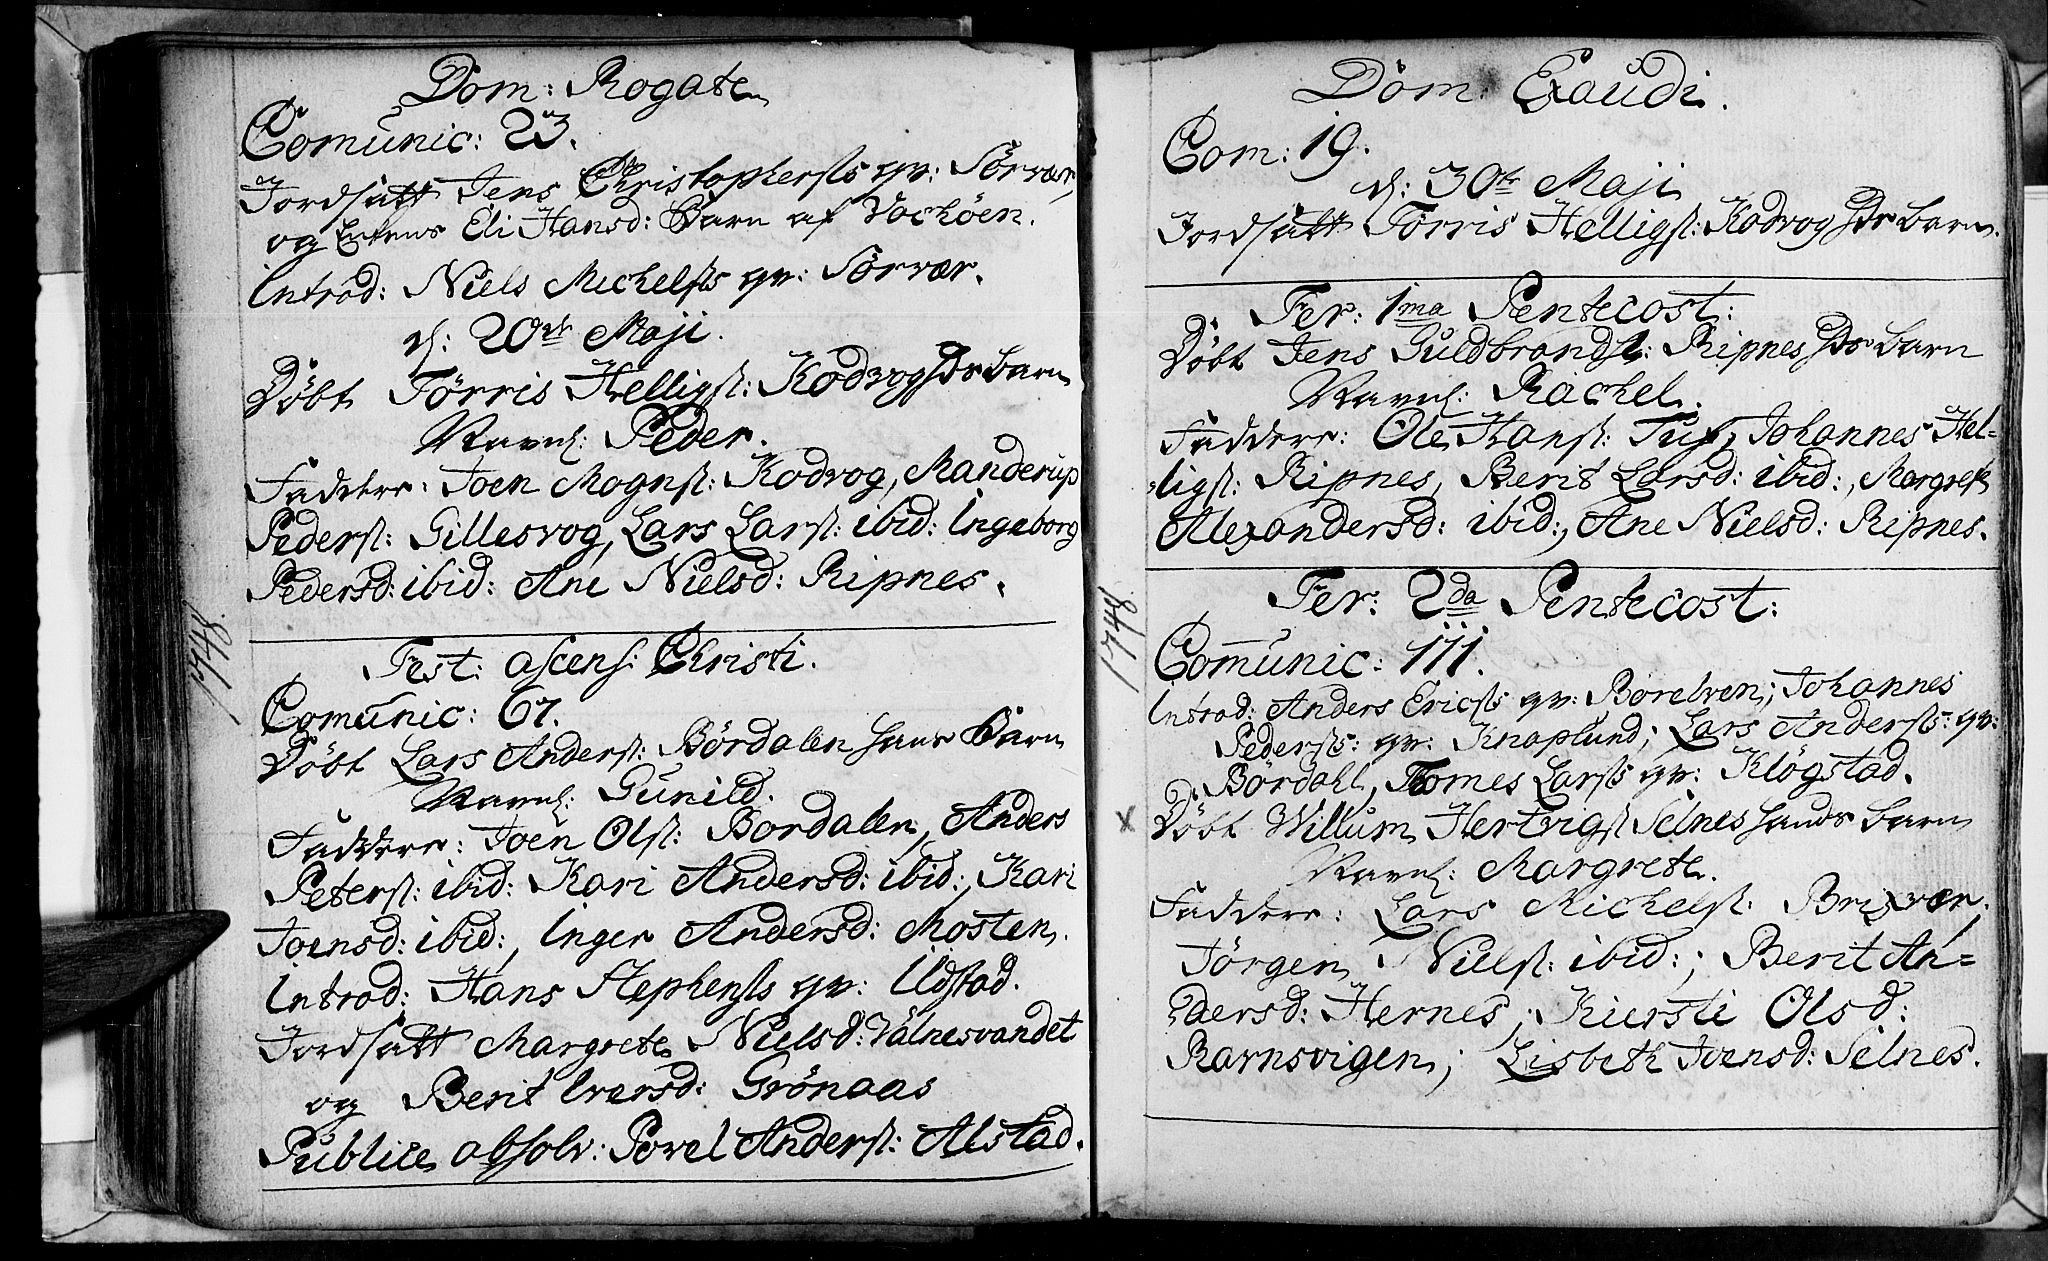 Dom: Rogate
Comunic: 23.
Jordsatt Jens Christophersls qv: Sörvær,
og Eli Hansd: Barn af Vachöen.
Introd: Niels Michelsls qv: Sörvær.
d: 20de Maji.
Döbt Törris Helligsl: Kodvog Ds barn
Navnl: Peder.
Faddere: Joen Mognsl: Kodvog, Manderup
Pedersl: Gillesvog, Lars Larsl: ibid: Ingeborg
Pedersd: ibid: Ane Nielsd: Ripnes.
1748.
Fest: ascens: Christi.
Comunic: 67.
Döbt Lars Andersl: Bördalen hans Barn
Navnl: Gunild.
Faddere: Joen Olsl: Bordalen, Anders
Petersl: ibid: Kari Andersd: ibid:, Kari
Joensd: ibid:, Inger Andersd: Mosten.
Introd: Hans Stephensls qv: Ildstad.
Jordsatt Margrete Nielsd: Valnesvandet
og Berit Iversd: Grönaas
Publice absolv: Povel Andersl: Alstad.
Dom: Exaudi.
Com: 19.
d: 30te Maji
Jordsatt Torris Helligsl: Kodvog Ds barn.
Fer: 1ma Pentecost:
Döbt Jens Guldbrandsl: Ripnes Ds barn
Navnl: Rachel.
Faddere: Ole Hansl: Tuf, Johannes Hel=
ligsl: Ripnes, Berit Larsd: ibid:, Margret
Alexandersd: ibid:, Ane Nielsd: Ripnes.
1748.
Fer: 2da Pentecost:
Comunic: 111.
Introd: Anders Ericsls qv: Börelven; Johannes
Pedersls: qv: Knaplund; Lars Andersls: qv:
Bördahl, Tomes Larsls qv: Klögstad.
x Döbt Willum Hertvigsl Selnes hands barn
Navnl: Margrete.
Faddere: Lars Michelsl: Brixvær,
Jörgen Nielsl: ibid:; Berit An=
dersd: Hernes; Kiersti Olsd:
Ramsvigen; Lisbeth Joensd: Selnes.